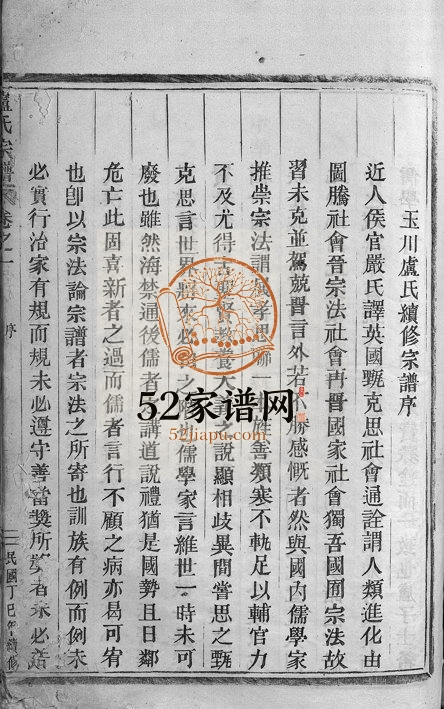 玉川盧氏續修宗譜序
近人侯官嚴氏譯英國甄克思社會通詮謂人類進化由
圖騰社會晉宗法社會再晉國家社會獨吾國囿宗法故
習未克並駕兢晋言外若不勝感慨者然與國內儒學家
推崇宗法謂孝思聯一姓善類塞不軌足以輔官力
不及尤得古聖賢教養大之說顯相歧異間嘗思之甄
克思言世界將來必之也儒學家言維世一時未可
廢也雖然海禁通後儒者講道說禮猶是國勢且日鄰
危亡此固喜新者之過而儒者言行不顧之病亦曷可宥
也卽以宗法論宗譜者宗法之所寄也訓族有例而例未
必實行治家有規而規未必遵守善當獎所者未必
盧氏宗譜 卷之一
序
民國丁巳年續修
52家谱网
52jiapu.com